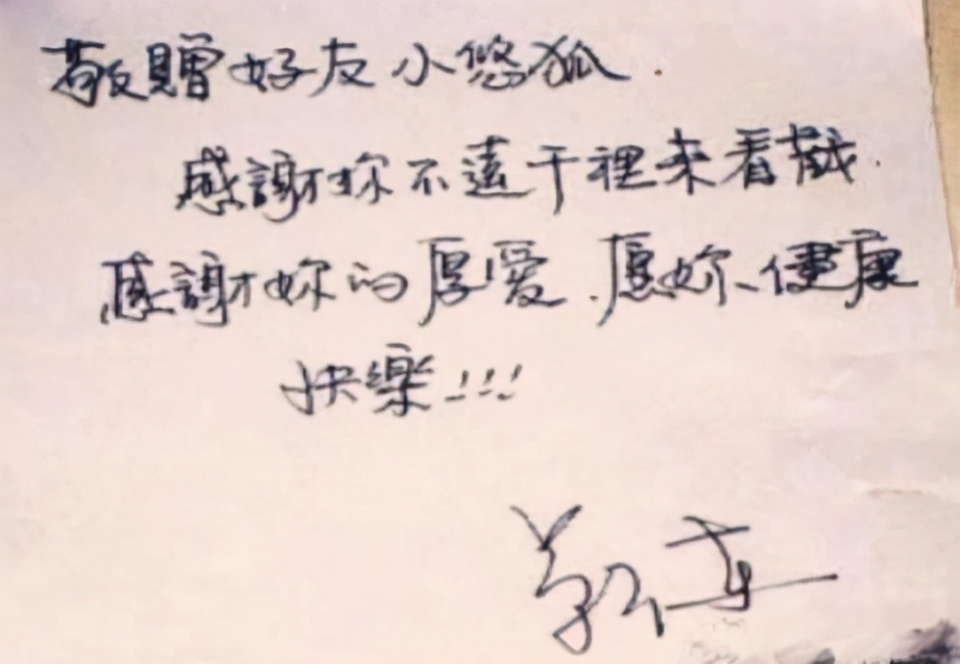 敬贈好友小悠狐.
感謝妳不遠千裡來看戲.
感謝妳的厚愛.愿妳、健康
快樂!!!